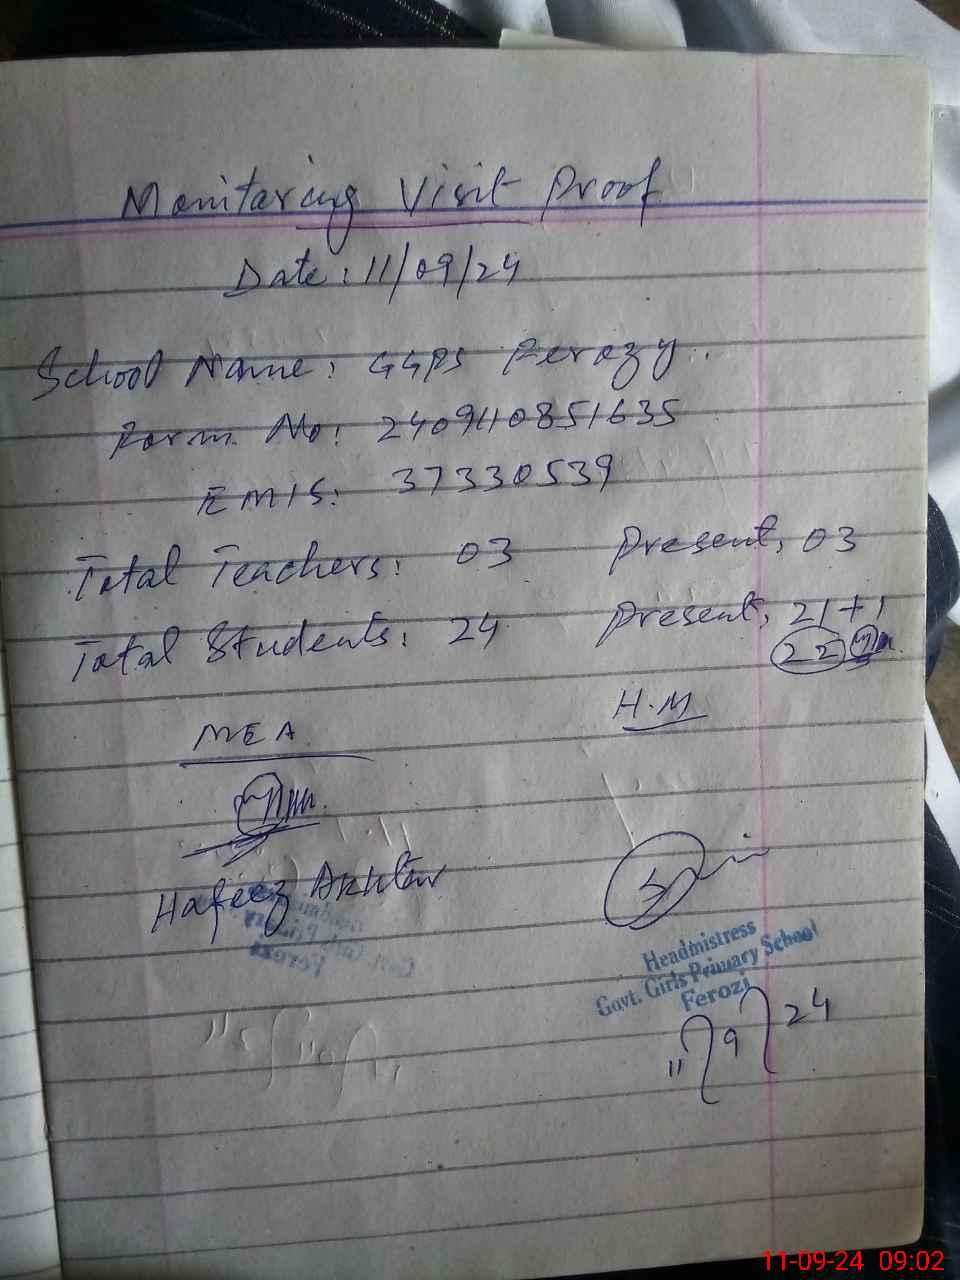 Monitaring Visit Proof
Date: 11/09/24
School Name: GGPS Ferozy
Form No: 2409110851635
EMIS: 37330539
Total Teachers: 03 Present: 03
Total Students: 24 Present: 21+1
22
MEA H.M
Hafeez Akhtar
Headmistress
Govt. Girls Primary School
Ferozi
11/9/24
11-09-24 09:02